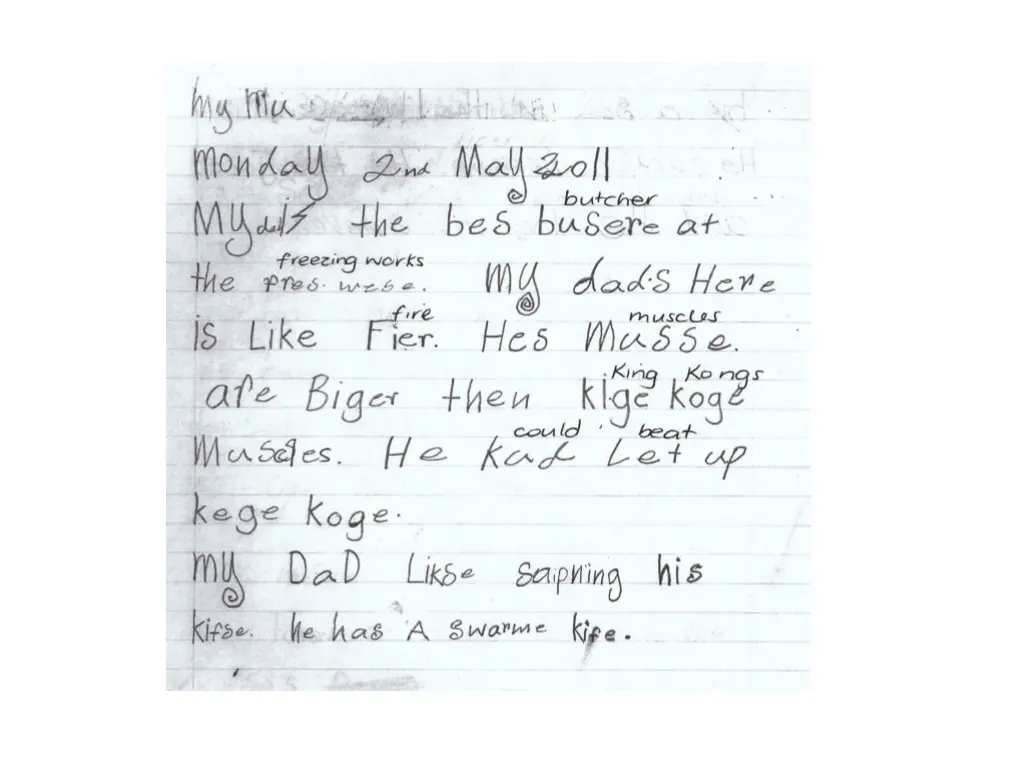 My Mu
Monday 2nd May 2011
butcher
My dad's the bes busere at
freezing works
the fres. wese. My dad's Here
fire muscles
is Like Fier. Hes Musse.
King Kongs
are Biger then kige koge
could beat
Muscles. He kud Let up
kege koge.
My DaD Likse saipning his
kifse. he has A swarme kife.